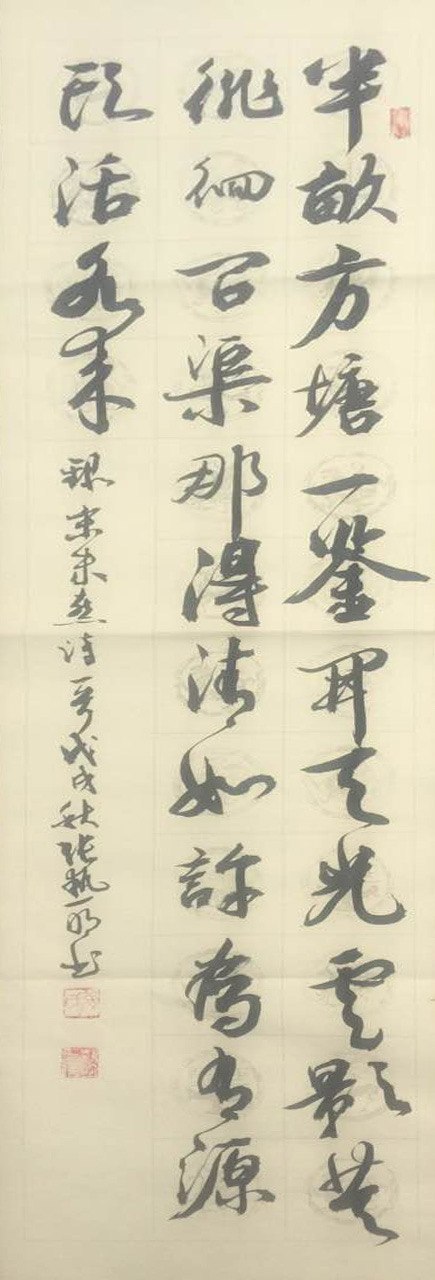 半畝方塘一鑒開天光雲影共
徘徊问渠那得清如許為有源
頭活水来
錄宋朱熹詩一首戊戌秋張執一明书